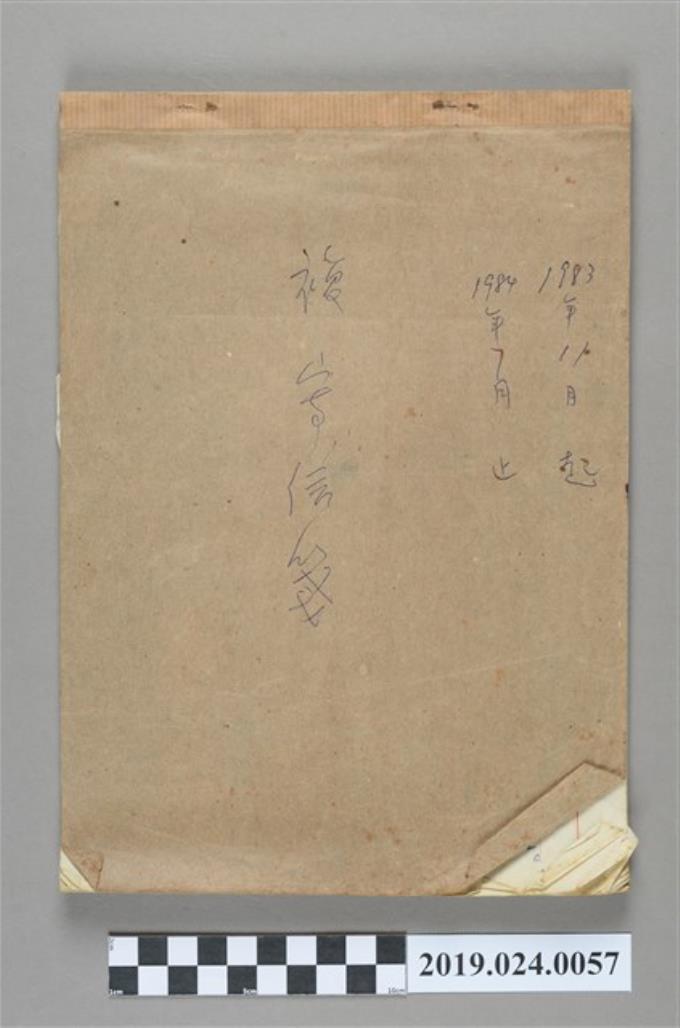 1983年11月起
1984年7月止
複寫信箋
2019.024.0057
1cm
5cm
10cm